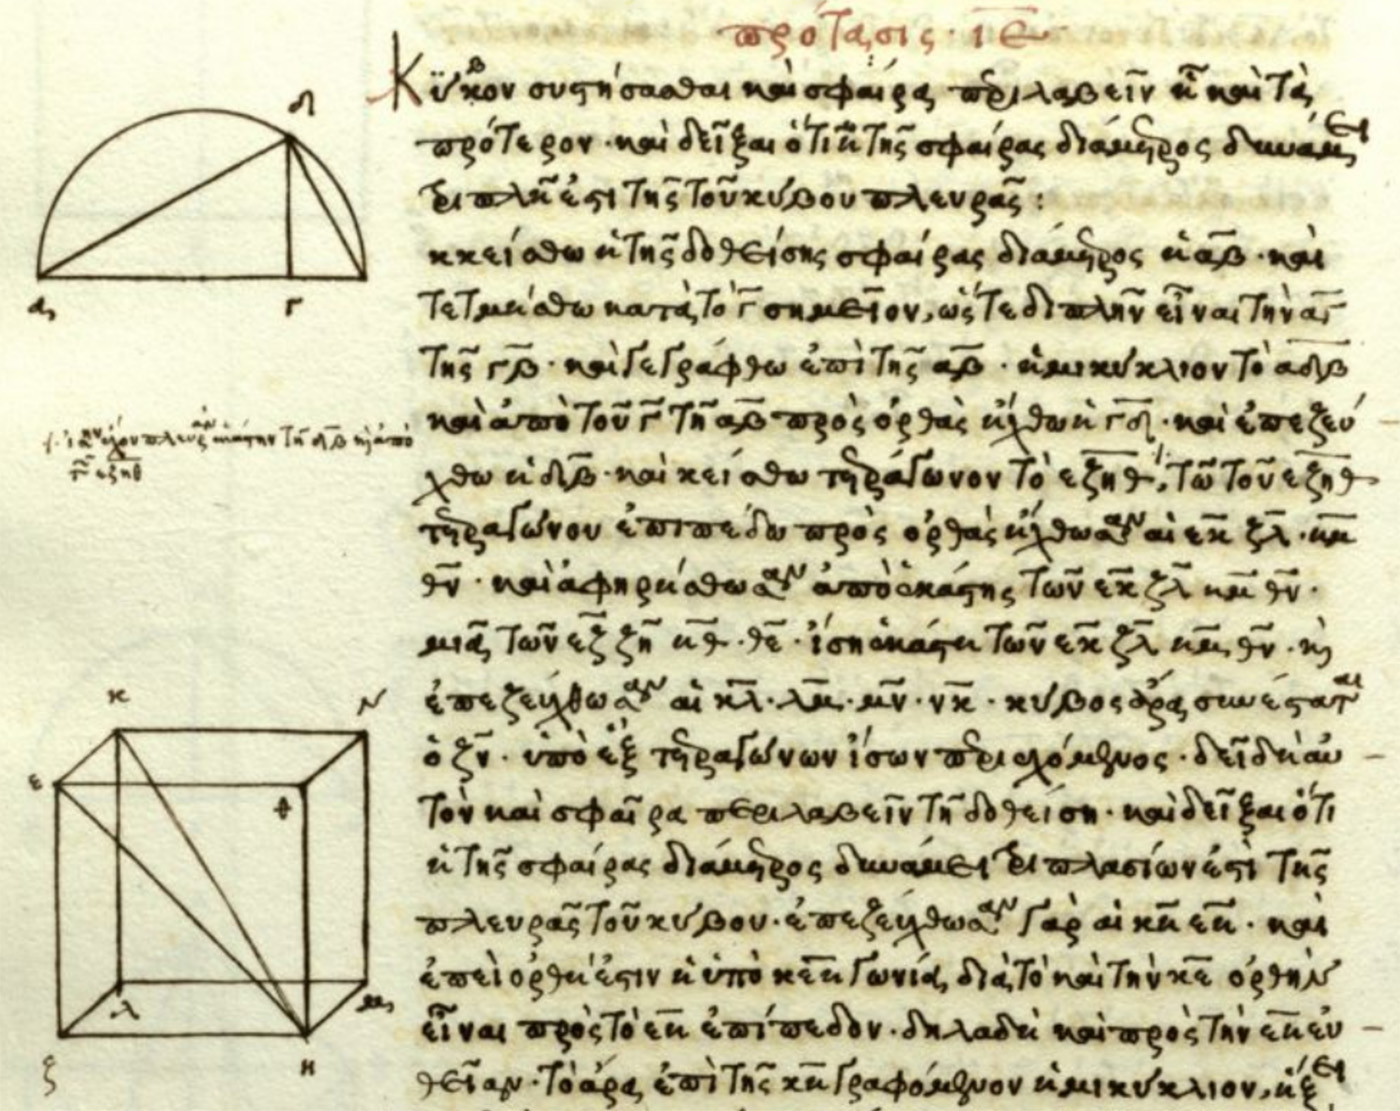 πρότασις · ιε
Κύβον συστήσασθαι καὶ σφαίρᾳ περιλαβεῖν ᾗ καὶ τὰ
πρότερον · καὶ δεῖξαι ὅτι ἡ τῆς σφαίρας διάμετρος δυνάμει
τριπλῆ ἐστι τῆς τοῦ κύβου πλευρᾶς :
κκείσθω ἡ τῆς δοθείσης σφαίρας διάμετρος ἡ αβ · καὶ
τετμήσθω κατὰ τὸ γ σημεῖον, ὥστε διπλῆν εἶναι τὴν αγ
τῆς γβ · καὶ γεγράφθω ἐπὶ τῆς αβ · ἡμικύκλιον τὸ αδβ
καὶ ἀπὸ τοῦ γ τῇ αβ πρὸς ὀρθὰς ἤχθω ἡ γδ · καὶ ἐπεζεύ
χθω ἡ δβ · καὶ κείσθω τετράγωνον τὸ εζηθ, τῷ τοῦ εζηθ
τετραγώνου ἐπιπέδῳ πρὸς ὀρθὰς ἤχθωσαν αἱ εκ ζλ · ημ
θν · καὶ ἀφηρήσθωσαν ἀπὸ ἑκάστης τῶν εκ ζλ ημ θν ·
μιᾷ τῶν εζ ζη ηθ · θε · ἴση ἑκάστη τῶν εκ ζλ ημ θν · καὶ
ἐπεζεύχθωσαν αἱ κλ · λμ · μν · νκ · κύβος ἄρα συνέσταται
ὁ ζν · ὑπὸ ἓξ τετραγώνων ἴσων περιεχόμενος · δεῖ δὴ αὐ
τὸν καὶ σφαίρᾳ περιλαβεῖν τῇ δοθείσῃ · καὶ δεῖξαι ὅτι
ἡ τῆς σφαίρας διάμετρος δυνάμει τριπλασίων ἐστὶ τῆς
πλευρᾶς τοῦ κύβου · ἐπεζεύχθωσαν γὰρ αἱ κη εη · καὶ
ἐπεὶ ὀρθή ἐστιν ἡ ὑπὸ κεη γωνία, διὰ τὸ καὶ τὴν κε ὀρθὴν
εἶναι πρὸς τὸ εη ἐπίπεδον · δηλαδὴ καὶ πρὸς τὴν εη εὐ
θεῖαν · τὸ ἄρα ἐπὶ τῆς κη γραφόμενον ἡμικύκλιον, ἥξει
δ
α
γ
ἴσην ἔχον πλευρὰν τῇ δβ
τὸ εζηθ
κ
ν
ε
θ
λ
μ
ζ
η